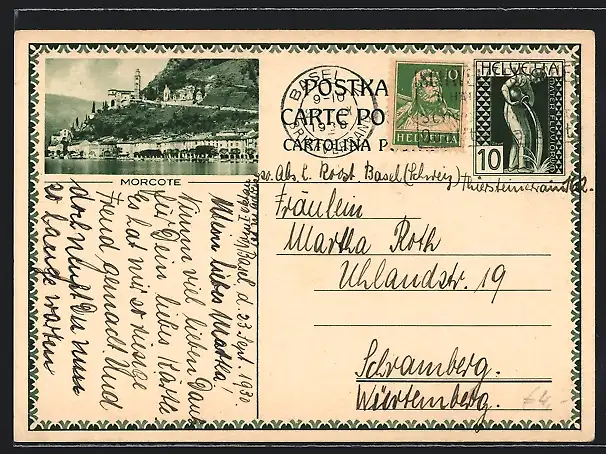 MORCOTE
POSTKA
CARTE PO
CARTOLINA P
BASEL
9-10
1930
10
HELVETIA
HELVETIA
10
Abs. E. Roost. Basel (Schweiz) Thiersteinerrain 162.
Fräulein
Martha Roth
Uhlandstr. 19
Schramberg.
Württemberg.
£4,-
Basel d. 23. Sept. 1930
Meine liebe Martha!
Nimm viel lieben Dank
für Dein liebes Kärtle
Es hat mir so riesige
Freud gemacht. Und
doch musst Du nun
so lange warten